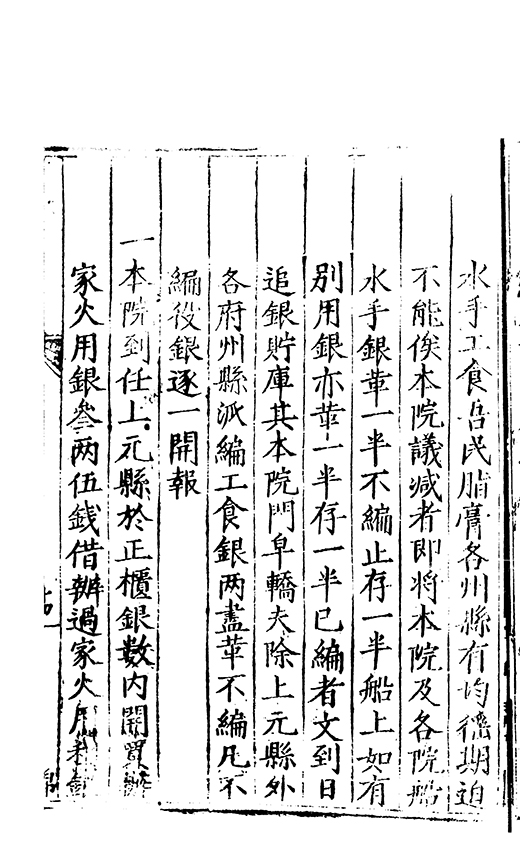 水手工食吾民脂膏各州縣有均徭期迫
不能俟本院議減者即將本院及各院船
水手銀革一半不編止存一半船上如有
別用銀亦革一半存一半已編者文到日
追銀貯庫其本院門皁轎夫除上元縣外
各府州縣派編工食銀两盡革不編凡不
編役銀逐一開報
一本院到任上元縣於正櫃銀數内開買辦
家火用銀叁两伍錢借辦過家火用